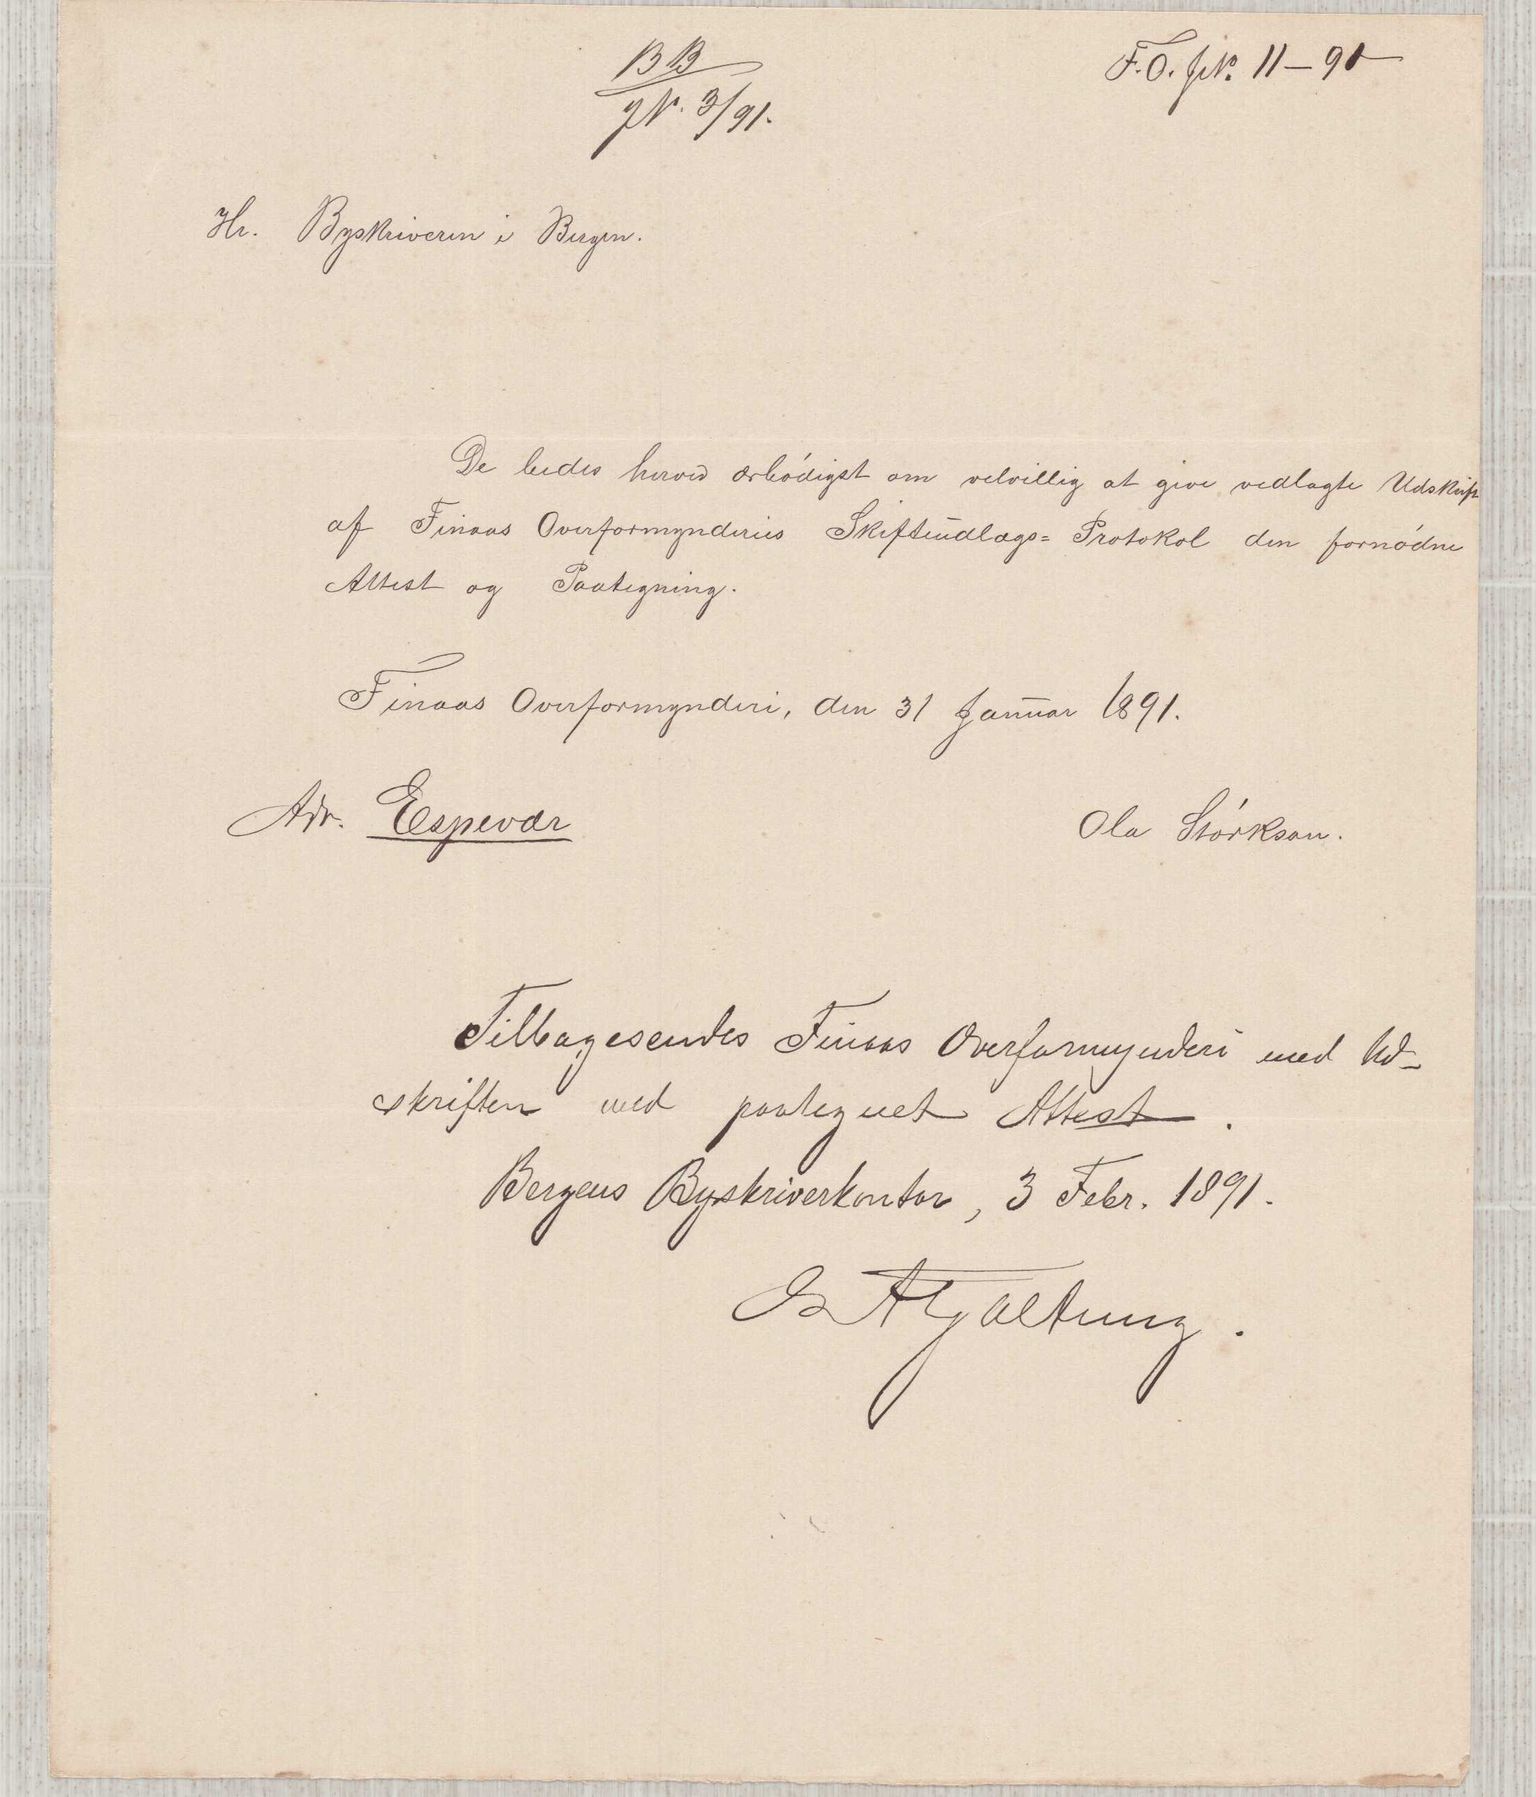 BB
JN. 3/91.
F.O. JN. 11-91
Hr. Byskriveren i Bergen.
De bedes herved ærbødigst om velvillig at give vedlagte Udskrift
af Finaas Overformynderies Skifteudlægs= Protokol den fornødne
Attest og Paategning.
Finaas Overformynderi, den 31 Januar 1891.
Adr. Espevær
Ola Størkson.
Tilbagesendes Finaas Overformynderi med Ud-
skriften med paategnet Attest.
Bergens Byskriverkontor, 3 Febr. 1891.